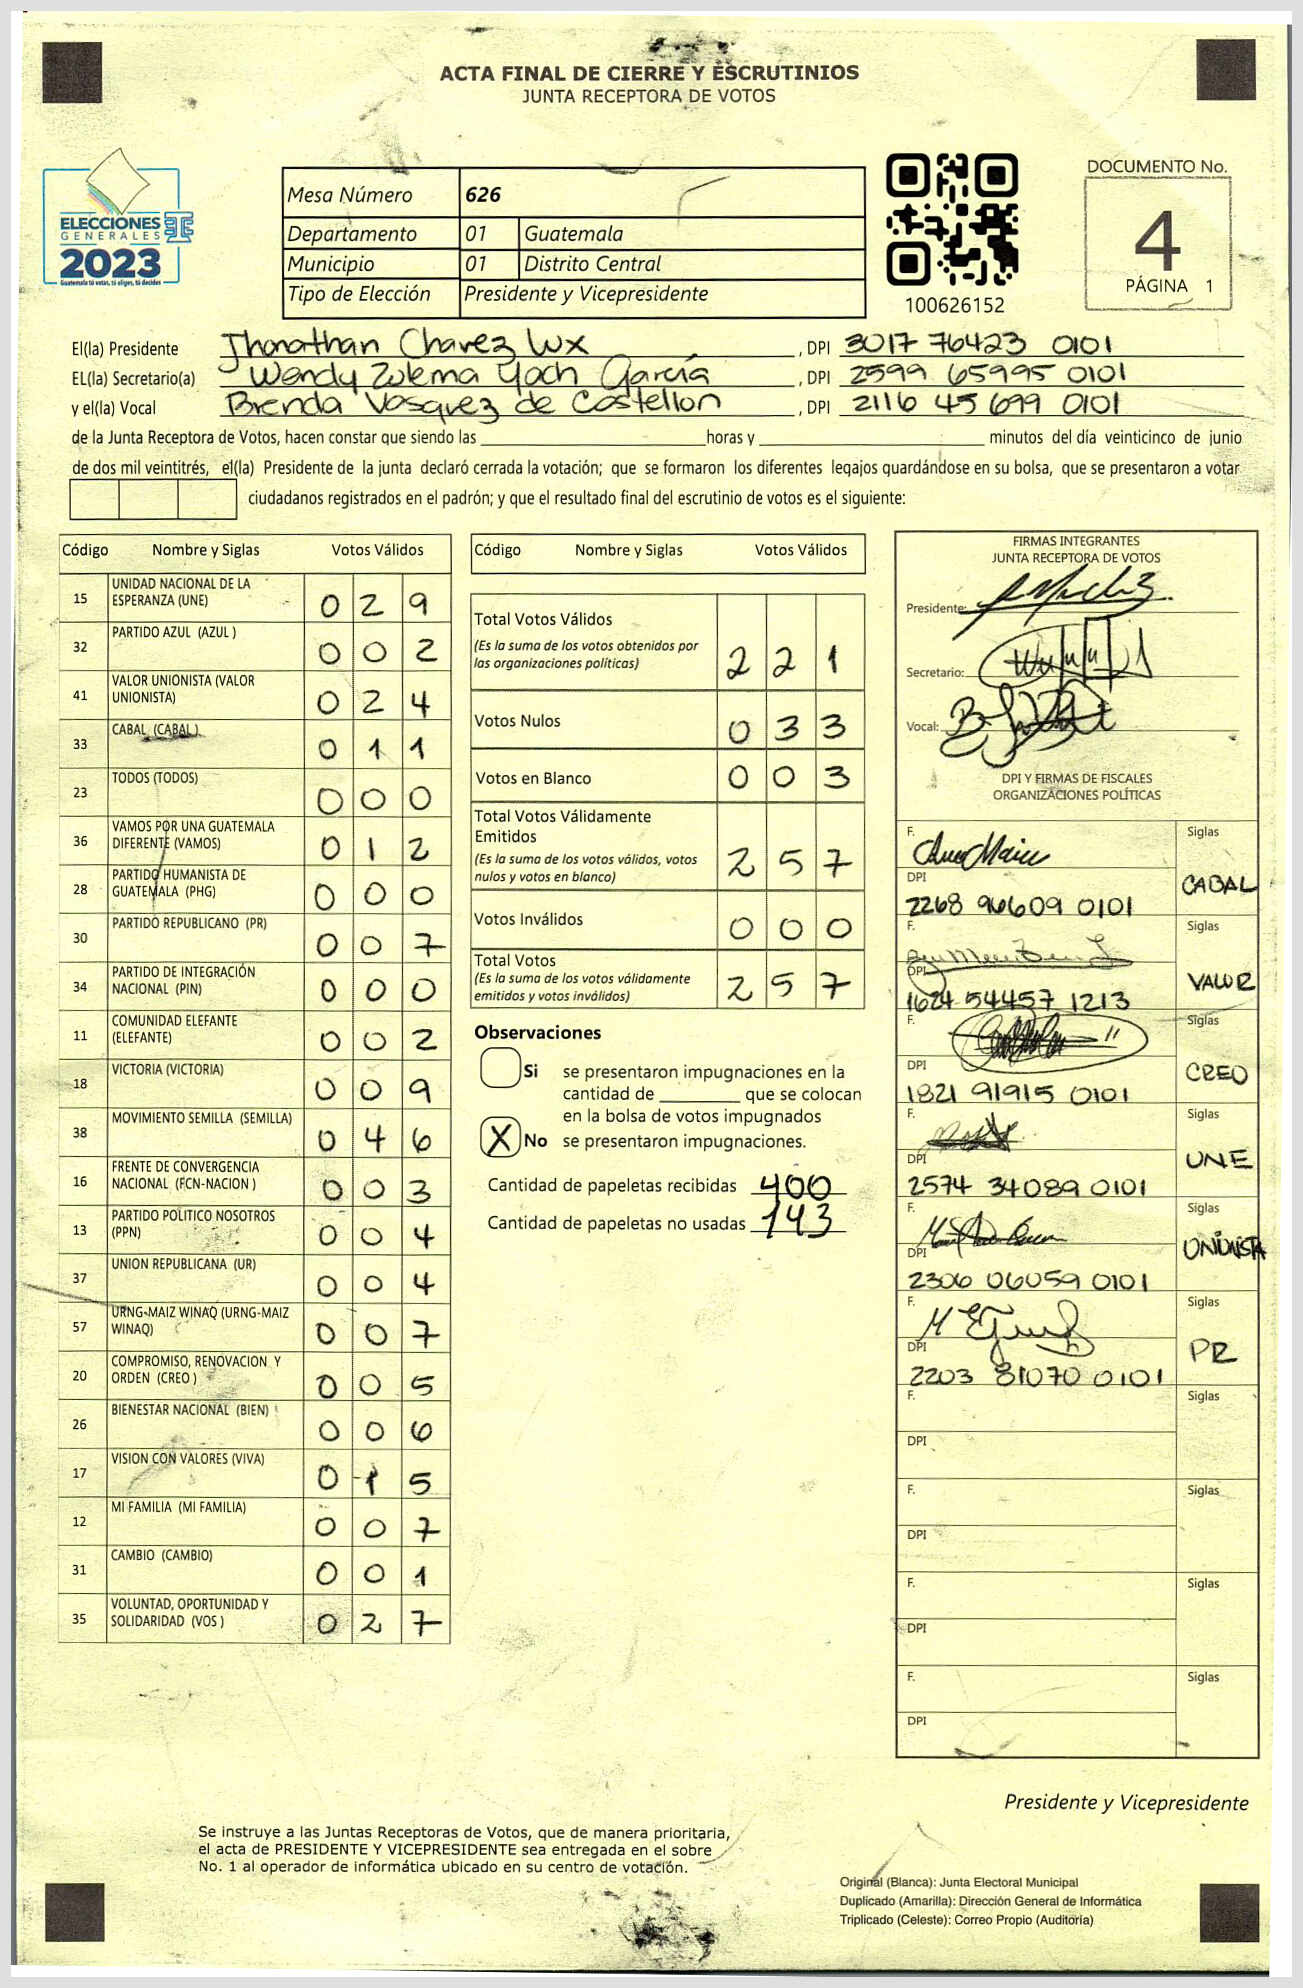 ACTA FINAL DE CIERRE Y ESCRUTINIOS
JUNTA RECEPTORA DE VOTOS
ELECCIONES
GENERALES
2023
Guatemala tú votas, tú eliges, tú decides
Mesa Número 626
Departamento 01 Guatemala
Municipio 01 Distrito Central
Tipo de Elección Presidente y Vicepresidente
100626152
DOCUMENTO No.
4
PÁGINA 1
El(la) Presidente Jhonathan Chavez Lux , DPI 3017 76423 0101
EL(la) Secretario(a) Wendy Zulema Yoch García , DPI 2599 65995 0101
y el(la) Vocal Brenda Vasquez de Castellon , DPI 2116 45 699 0101
de la Junta Receptora de Votos, hacen constar que siendo las horas y minutos del día veinticinco de junio
de dos mil veintitrés, el(la) Presidente de la junta declaró cerrada la votación; que se formaron los diferentes legajos guardándose en su bolsa, que se presentaron a votar
ciudadanos registrados en el padrón; y que el resultado final del escrutinio de votos es el siguiente:
Código Nombre y Siglas Votos Válidos
15 UNIDAD NACIONAL DE LA ESPERANZA (UNE) 0 2 9
32 PARTIDO AZUL (AZUL ) 0 0 2
41 VALOR UNIONISTA (VALOR UNIONISTA) 0 2 4
33 CABAL (CABAL) 0 1 1
23 TODOS (TODOS) 0 0 0
36 VAMOS POR UNA GUATEMALA DIFERENTE (VAMOS) 0 1 2
28 PARTIDO HUMANISTA DE GUATEMALA (PHG) 0 0 0
30 PARTIDO REPUBLICANO (PR) 0 0 7
34 PARTIDO DE INTEGRACIÓN NACIONAL (PIN) 0 0 0
11 COMUNIDAD ELEFANTE (ELEFANTE) 0 0 2
18 VICTORIA (VICTORIA) 0 0 9
38 MOVIMIENTO SEMILLA (SEMILLA) 0 4 6
16 FRENTE DE CONVERGENCIA NACIONAL (FCN-NACION ) 0 0 3
13 PARTIDO POLITICO NOSOTROS (PPN) 0 0 4
37 UNION REPUBLICANA (UR) 0 0 4
57 URNG-MAIZ WINAQ (URNG-MAIZ WINAQ) 0 0 7
20 COMPROMISO, RENOVACION Y ORDEN (CREO ) 0 0 5
26 BIENESTAR NACIONAL (BIEN) 0 0 6
17 VISION CON VALORES (VIVA) 0 1 5
12 MI FAMILIA (MI FAMILIA) 0 0 7
31 CAMBIO (CAMBIO) 0 0 1
35 VOLUNTAD, OPORTUNIDAD Y SOLIDARIDAD (VOS ) 0 2 7
Código Nombre y Siglas Votos Válidos
Total Votos Válidos
(Es la suma de los votos obtenidos por
las organizaciones políticas) 2 2 1
Votos Nulos 0 3 3
Votos en Blanco 0 0 3
Total Votos Válidamente
Emitidos
(Es la suma de los votos válidos, votos
nulos y votos en blanco) 2 5 7
Votos Inválidos 0 0 0
Total Votos
(Es la suma de los votos válidamente
emitidos y votos inválidos) 2 5 7
Observaciones
Si se presentaron impugnaciones en la
cantidad de que se colocan
en la bolsa de votos impugnados
X No se presentaron impugnaciones.
Cantidad de papeletas recibidas 400
Cantidad de papeletas no usadas 143
FIRMAS INTEGRANTES
JUNTA RECEPTORA DE VOTOS
Presidente:
Secretario:
Vocal:
DPI Y FIRMAS DE FISCALES
ORGANIZACIONES POLÍTICAS
F. Siglas
DPI CABAL
2268 96609 0101
F. Siglas
DPI VALOR
1624 54457 1213
F. Siglas
DPI CREO
1821 91915 0101
F. Siglas
DPI UNE
2574 34089 0101
F. Siglas
DPI UNIONISTA
2306 06059 0101
F. Siglas
DPI PR
2203 81070 0101
F. Siglas
DPI
F. Siglas
DPI
F. Siglas
DPI
F. Siglas
DPI
Presidente y Vicepresidente
Se instruye a las Juntas Receptoras de Votos, que de manera prioritaria,
el acta de PRESIDENTE Y VICEPRESIDENTE sea entregada en el sobre
No. 1 al operador de informática ubicado en su centro de votación.
Original (Blanca): Junta Electoral Municipal
Duplicado (Amarilla): Dirección General de Informática
Triplicado (Celeste): Correo Propio (Auditoría)